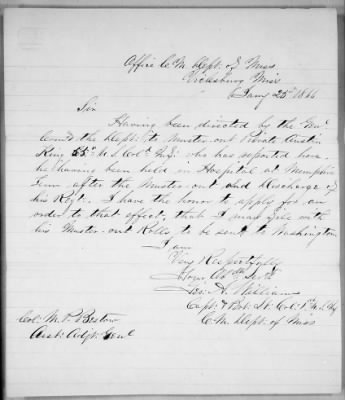 Office C. M. Dept. of Miss
Vicksburg Miss
Jany 25th 1866
Sir
Having been directed by the Genl
Comdg the Dept. to Muster-out Private Austin
King 55th U.S. Cold Inf: who has reported here
he having been held in Hospital at Memphis
Tenn after the Muster-out and discharge of
his Regt. I have the honor to apply for an
order to that effect, that I may file with
his Muster-out Rolls, to be sent to Washington
I am
Very Respectfully
Your Obdt Servt
Williams
Capt. & Bvt. Lt. Col: 1st U.S. Inf
C. M. Dept of Miss
Col: M. P. Bestow
Asst: Adjt: Genl